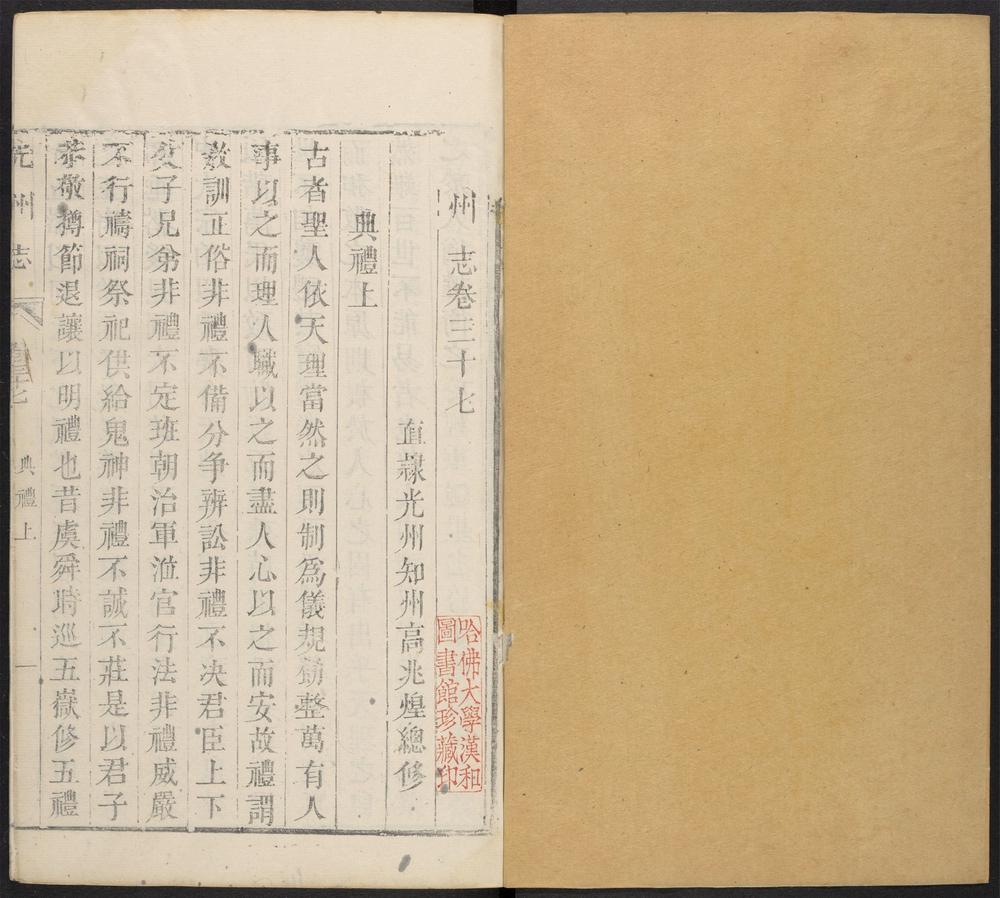 州志卷三十七
哈佛大學漢和
圖書館珍藏印
直隸光州知州高兆煌總修
典禮上
古者聖人依天理當然之則制爲儀規勅整萬有人
事以之而理人職以之而盡人心以之而安故禮謂
教訓正俗非禮不備分争辨訟非禮不决君臣上下
父子兄弟非禮不定班朝治軍涖官行法非禮威嚴
不行禱祠祭祀供給鬼神非禮不誠不莊是以君子
恭敬撙節退讓以明禮也昔虞舜時巡五嶽修五禮
光州志
典禮上
一